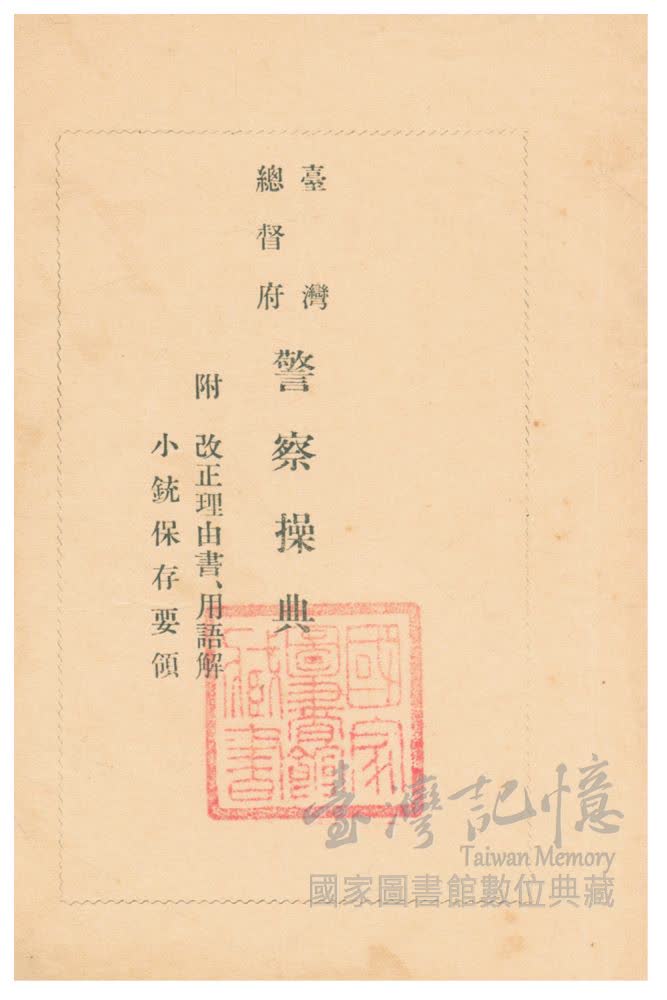 臺灣
總督府
警察操典
附 改正理由書、用語解
小銃保存要領
國家
圖書館
藏書
臺灣記憶
Taiwan Memory
國家圖書館數位典藏